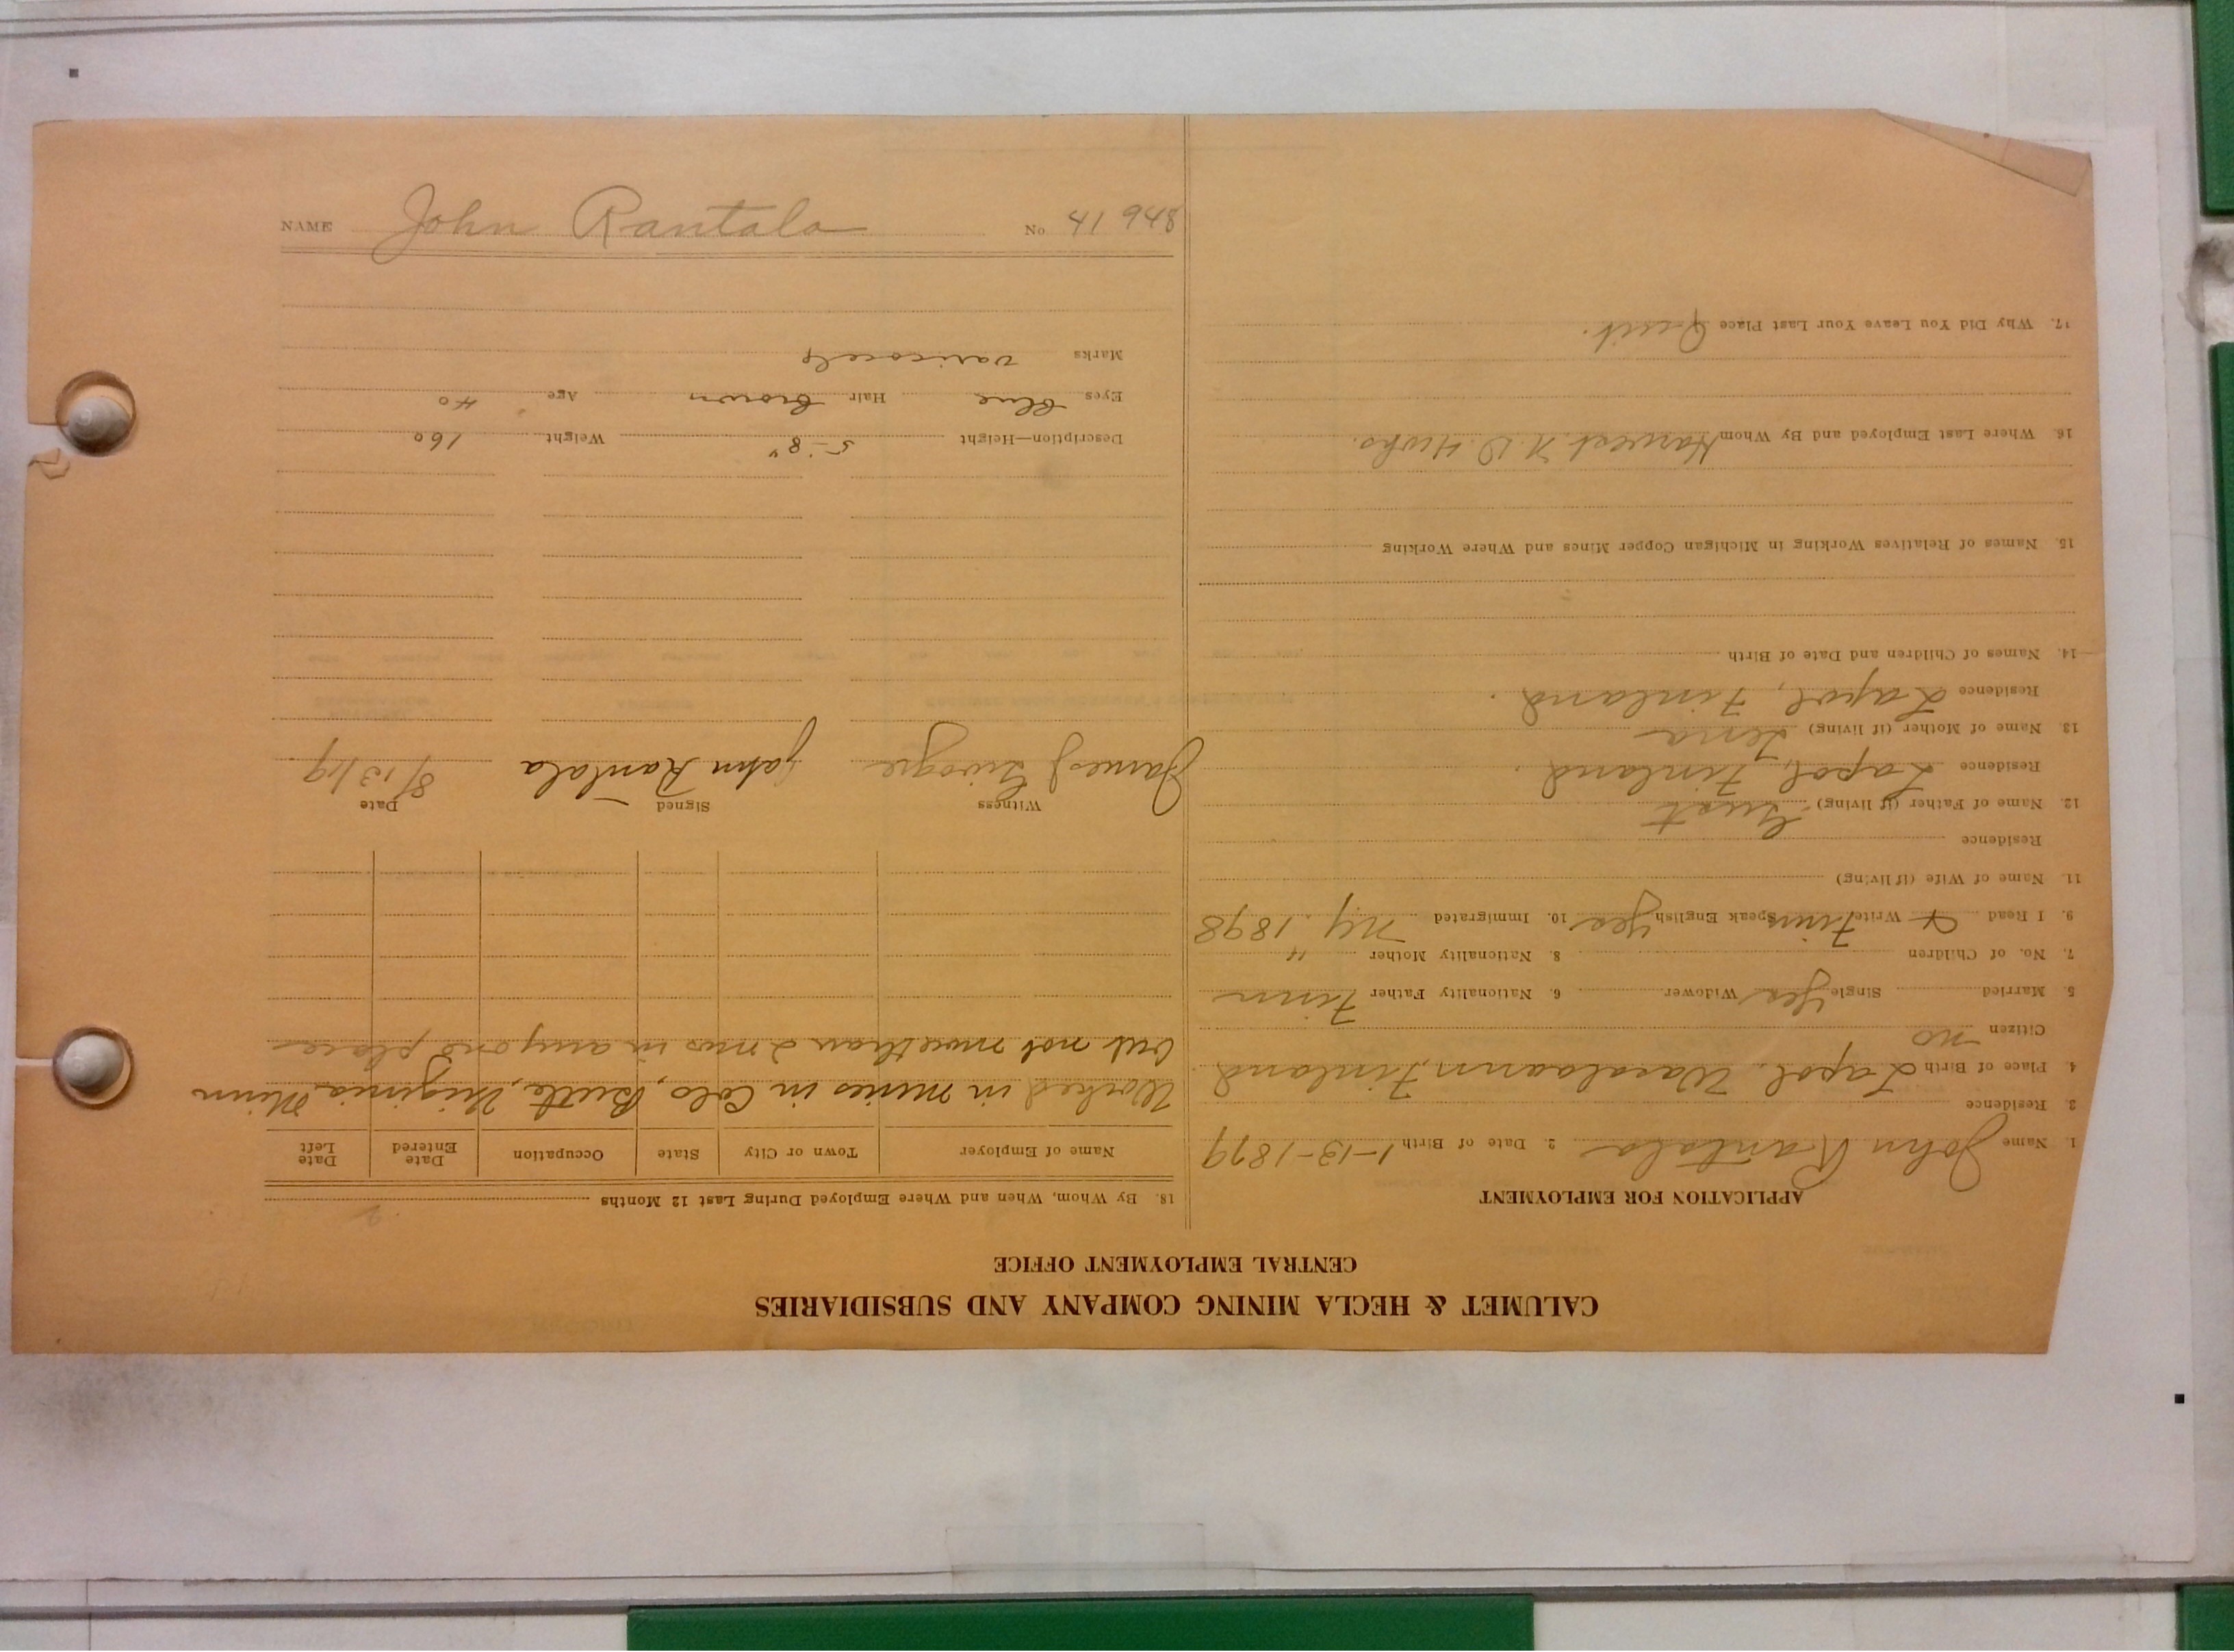 CALUMET & HECLA MINING COMPANY AND SUBSIDIARIES
CENTRAL EMPLOYMENT OFFICE
APPLICATION FOR EMPLOYMENT
1. Name John Rantala 2. Date of Birth 1-13-1879
3. Residence
4. Place of Birth Lapol. Wasalaann, Finland
Citizen no
5. Married Single Yes Widower 6. Nationality Father Finn
7. No. of Children 8. Nationality Mother "
9. I Read & Write Finn Speak English Yes 10. Immigrated NY. 1898
11. Name of Wife (if living)
Residence
12. Name of Father (if living) Gust
Residence Lapol, Finland.
13. Name of Mother (if living) Lena
Residence Lapol, Finland.
14. Names of Children and Date of Birth
15. Names of Relatives Working in Michigan Copper Mines and Where Working
16. Where Last Employed and By Whom Harvest N. D.
17. Why Did You Leave Your Last Place Quit.
18. By Whom, When and Where Employed During Last 12 Months
Name of Employer Town or City State Occupation Date Entered Date Left
Worked in mines in Colo, Butte, Virginia Minn
but not more than 2 mos in any one place
Witness Signed Date
James J John Rantala 8/13/19
Description—Height 5-8" Weight 160
Eyes Blue Hair Brown Age 40
Marks Varicocele
NAME John Rantala No. 41 948